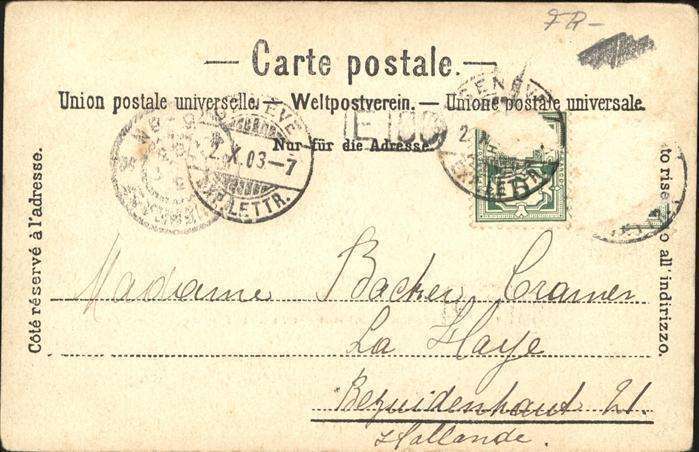 FR-
— Carte postale. —
Union postale universelle. — Weltpostverein. — Unione postale universale.
Nur für die Adresse.
Côté réservé à l'adresse.
to riser
o all' indirizzo.
GENÈVE
2.X.03-7
EXP. LETTR.
GENÈV
2
EXP. LETTR.
5
Madame Backer Cramer
La Haye
Bezuidenhout 21.
Hollande.